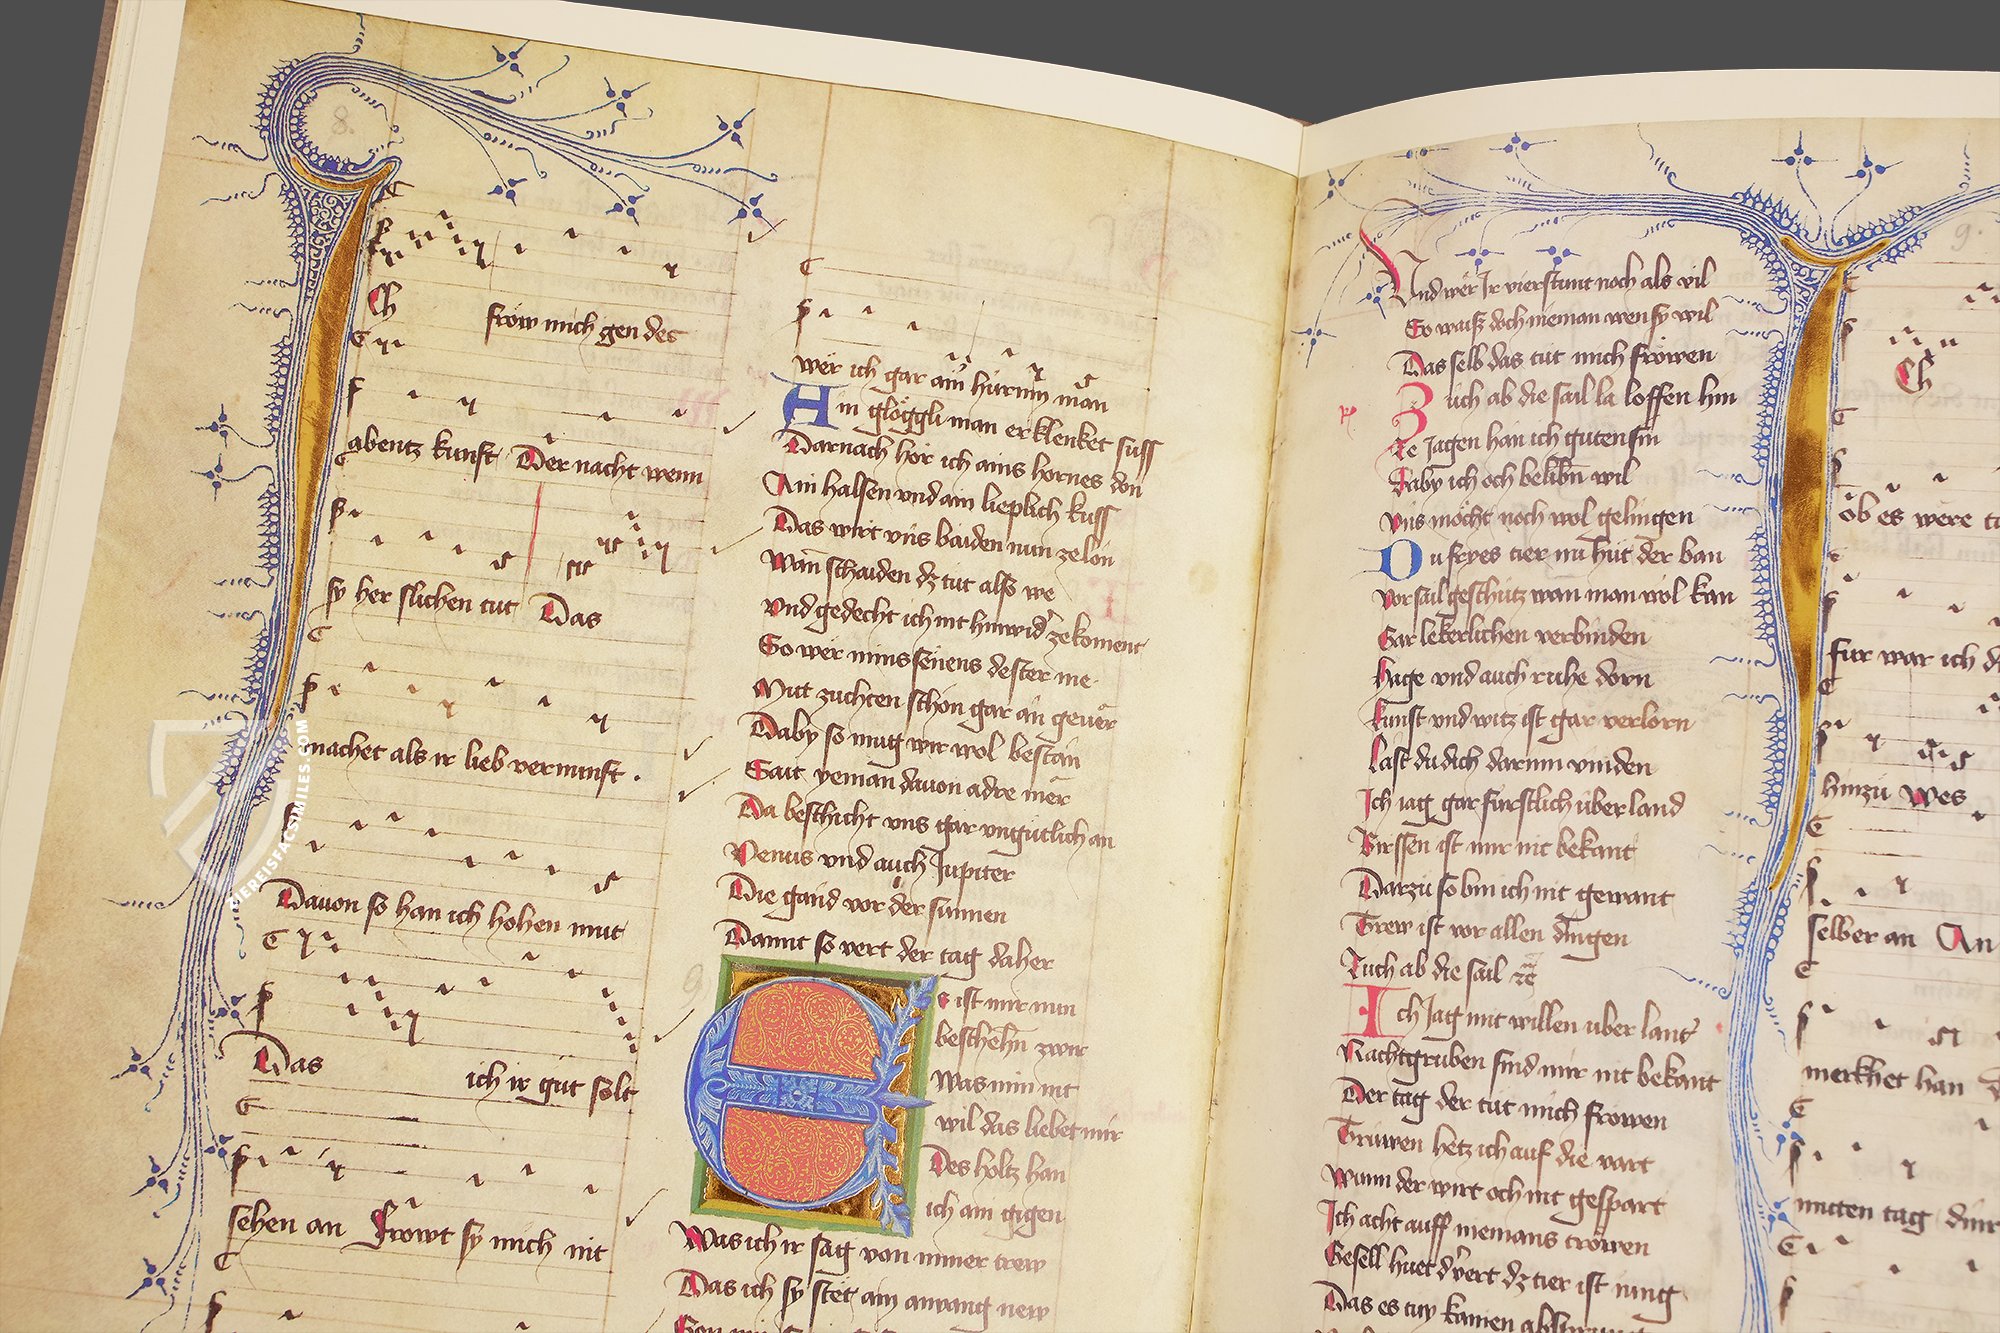 8.
Ch frow mich gen des
abentz kunft Der nacht wenn
sy her slichen tut Das
machet als ir lieb vernunft .
Davon so han ich hohen mut
Das ich ir gůt solt
sehen an Frowt sy mich nit
wer ich gar ain hürnin man
Ain glöggli man erklenket suss
Darnach hör ich ains hornes don
Ain halsen vnd ain lieplich kuss
Das wirt vns baiden nun ze lon
Wan schaiden dz tut alss we
vnd gedecht ich nit hinwider ze koment
So wer mins senens dester me
Mit zuchten schon gar an gever
Daby so mug wir wol bestan
Sait yeman davon adre mer
Da beschicht vns gar vngütlich an
Venus vnd auch Jupiter
Die gand vor der sunnen
Damit so vert der tag daher
9
Es ist mir nun
beschehn zwir
Was min nit
wil das liebet mir
Des holtz han
ich ain gigen
Was ich ir sag von miner trew
Das ich sy stet ain anvang new
Vnd wer Ir vierstunt noch als vil
So waiss doch nieman wen sy wil
Das selb das tut mich fröwen
Zuch ab die sail la loffen hin
Ze Jagen han ich guten sin
Daby ich och beliben wil
vns möcht noch wol gelingen
Du fryes tier nu hüt der ban
vor sail geschütz wan man wol kan
Gar lekerlichen verbinden
hage vnd auch ruhe dorn
kunst vnd witz ist gar verlorn
Last du dich darinn vinden
Ich iag gar furstlich über land
Birssen ist mir nit bekant
Darzu so bin ich nit gewant
Trew ist vor allen dingen
Zuch ab die sail zc
Ich Jag mit willen uber lant
Nachtgruben sind mir nit bekant
Der tag der tut mich frowen
Trüwen hetz ich auf die vart
Wann der wirt och nit gespart
Ich acht auff niemans tröwen
Gesell huet dz tier ist
Das es
9.
Ch
ob es were
fur war ich
hinzü Wes
selber an An
merkhet han
mitten tag
ZIEREISFACSIMILES.COM